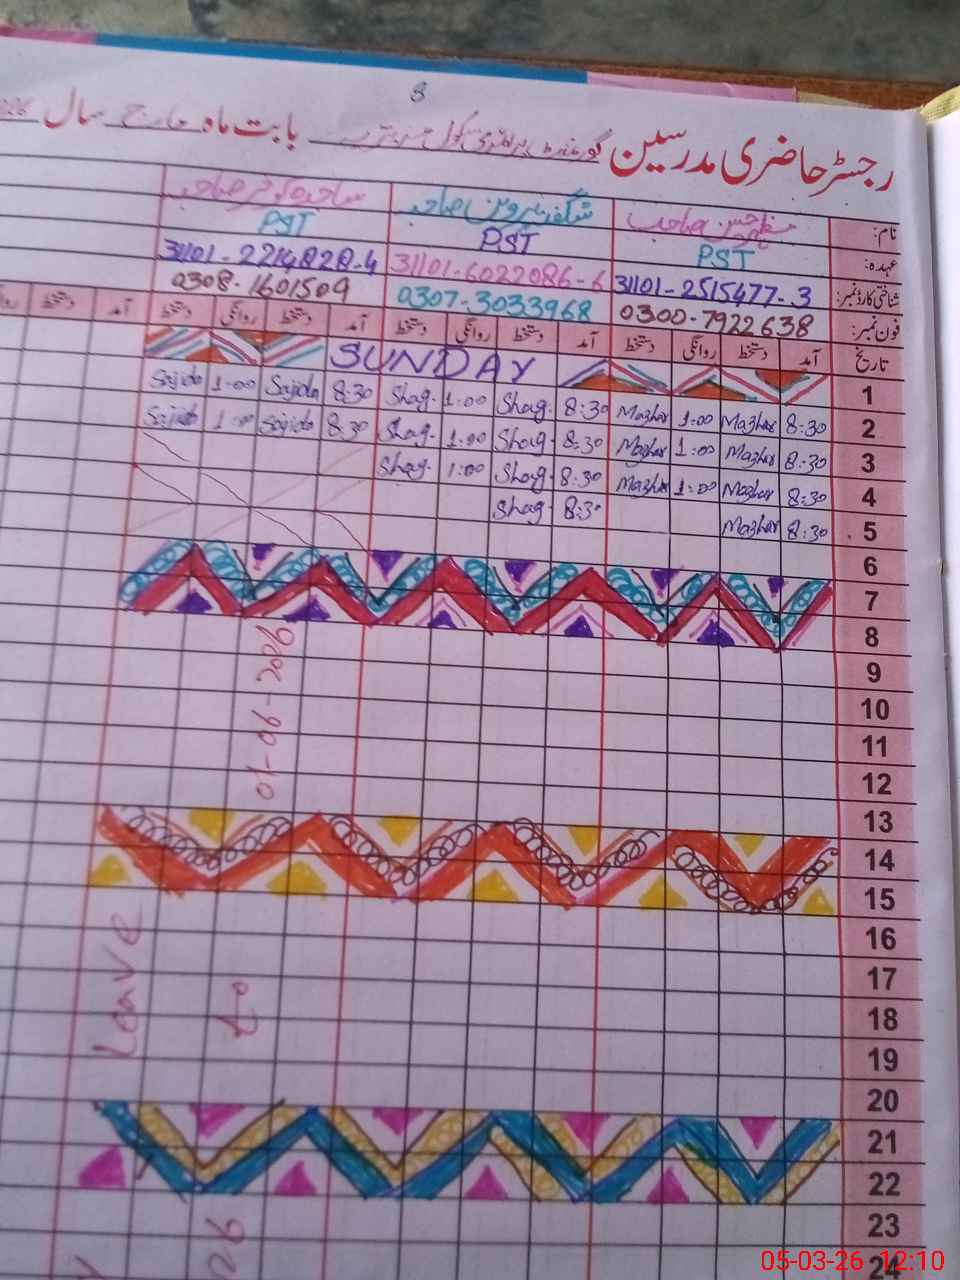 8
رجسٹر حاضری مدرسین گورنمنٹ پرائمری سکول بابت ماہ مارچ سال
نام: مظہر حسن صاحب شگفتہ پروین صاحبہ ساجدہ کوثر صاحبہ
عہدہ: PST PST PST
شناختی کارڈ نمبر: 31101-2515477-3 31101-6022086-6 31101-2214828-4
فون نمبر: 0300-7922638 0307-3033968 0308-1601509
تاریخ آمد دستخط روانگی دستخط آمد دستخط روانگی دستخط آمد دستخط روانگی دستخط آمد دستخط
1 SUNDAY
2 8:30 Mazhar 1:00 Mazhar 8:30 Shag. 1:00 Shag. 8:30 Sajida 1:00 Sajida
3 8:30 Mazhar 1:00 Mazhar 8:30 Shag. 1:00 Shag. 8:30 Sajida 1:00 Sajida
4 8:30 Mazhar 1:00 Mazhar 8:30 Shag. 1:00 Shag.
5 8:30 Mazhar 8:30 Shag.
6
7
8
9
10
11
12
13
14
15
16
17
18
19
20
21
22
23
24
Leave
to
05-03-26 12:10